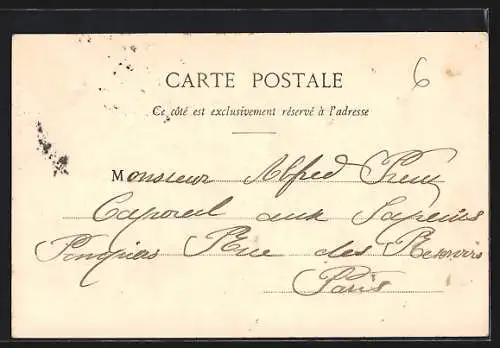 6
CARTE POSTALE
Ce côté est exclusivement réservé à l'adresse
Monsieur Alfred
Caporal aux Sapeurs
Pompiers Rue des Reservoirs
Paris